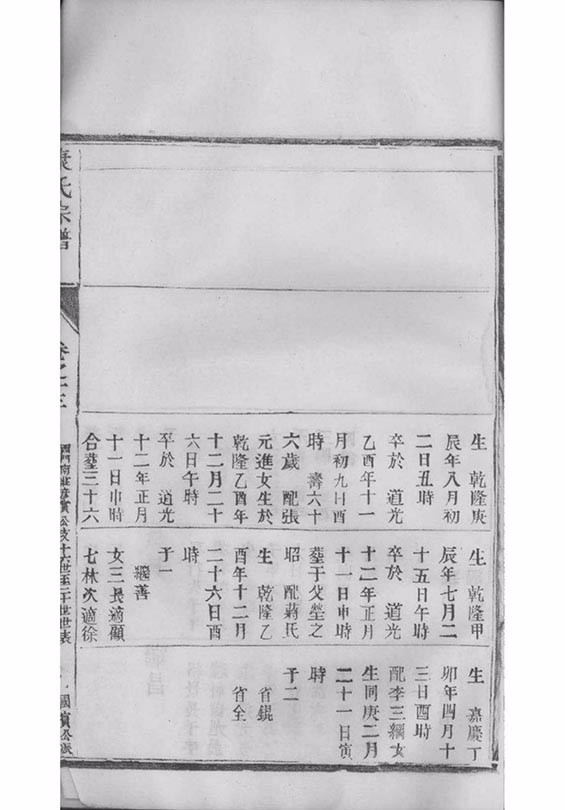 生　乾隆庚
辰年八月初
二日丑時
卒於　道光
乙酉年十一
月初九日酉
時　壽六十
六歲　配張
元進女生於
乾隆乙酉年
十二月二十
六日午時
卒於　道光
十二年正月
十一日申時
合塟三十六
生　乾隆甲
辰年七月二
十五日午時
卒於　道光
十二年正月
十一日申時
塟于父塋之
昭　配蔣氏
生　乾隆乙
酉年十二月
二十六日酉
時
子一
繼善
女三長適顧
七林次適徐
生　嘉慶丁
卯年四月十
三日酉時
配李三綱女
生同庚二月
二十一日寅
時
子二
省錕
省全
康氏宗譜
卷之十三
公支十六世至二十世世表
國賓公派